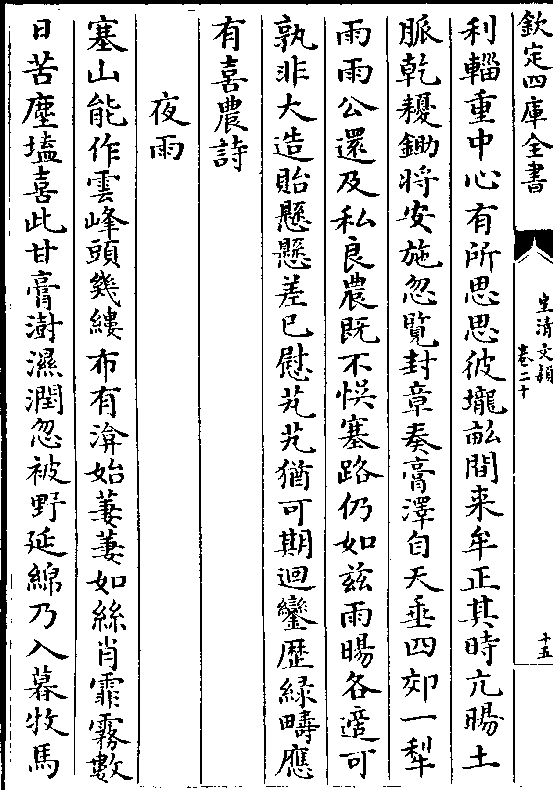 欽定四庫全書
皇清文穎
卷二十
十五
利輜重中心有所思思彼壠畝間来牟正其時亢暘土
脈乾耰鋤將安施忽覽封章奏膏澤自天垂四郊一犁
雨雨公還及私良農既不悞塞路仍如兹雨暘各適可
孰非大造貽懸懸差已慰芃芃猶可期迴鑾歴緑疇應
有喜農詩
夜雨
塞山能作雲峰頭幾縷布有渰始萋萋如絲肖霏霧數
日苦塵堨喜此甘膏澍濕潤忽被野延綿乃入暮牧馬